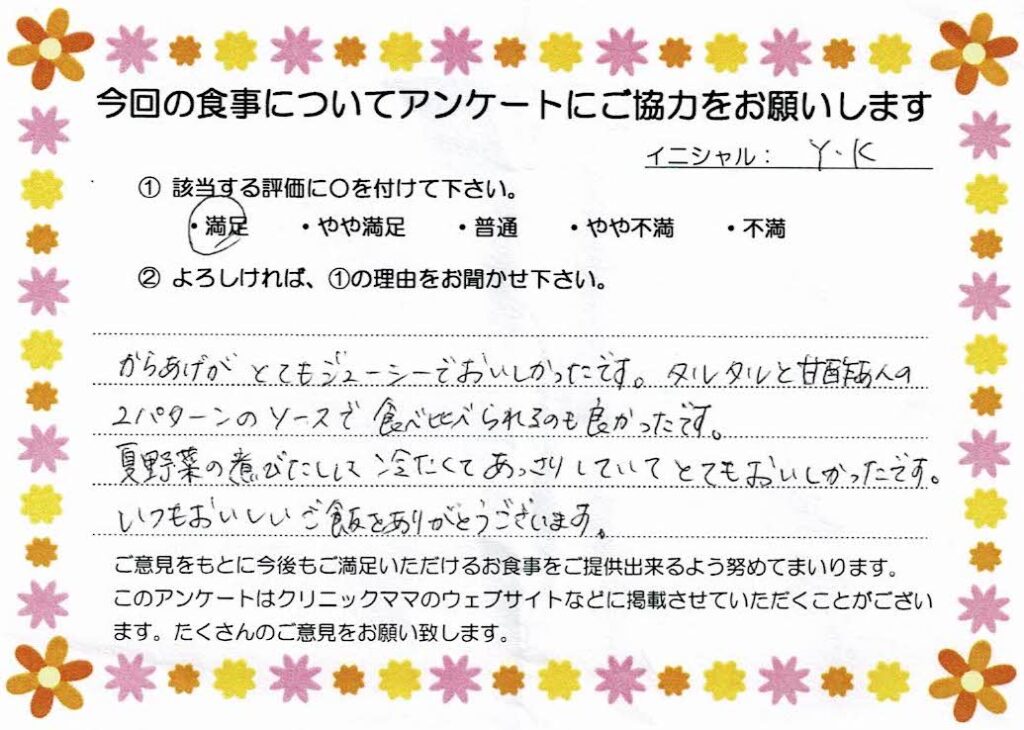 今回の食事についてアンケートにご協力をお願いします
イニシャル： Y.K
① 該当する評価に〇を付けて下さい。
・満足 ・やや満足 ・普通 ・やや不満 ・不満
② よろしければ、①の理由をお聞かせ下さい。
からあげが とてもジューシーでおいしかったです。タルタルと甘酢あんの
2パターンのソースで 食べ比べられるのも良かったです。
夏野菜の煮びたしも 冷たくて あっさりしていて とてもおいしかったです。
いつもおいしいご飯をありがとうございます。
ご意見をもとに今後もご満足いただけるお食事をご提供出来るよう努めてまいります。
このアンケートはクリニックママのウェブサイトなどに掲載させていただくことがござい
ます。たくさんのご意見をお願い致します。